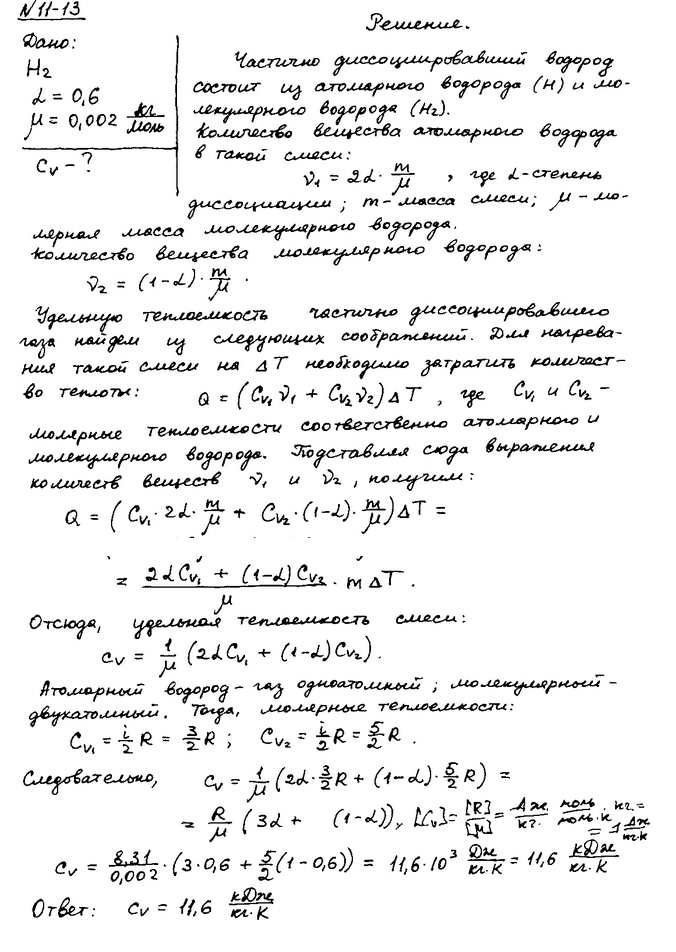 N 11-13
Решение.
Дано:
H₂
α = 0,6
μ = 0,002 кг/моль
Cv - ?
Частично диссоциировавший водород
состоит из атомарного водорода (H) и мо-
лекулярного водорода (H₂).
Количество вещества атомарного водорода
в такой смеси:
ν₁ = 2α · m/μ , где α-степень
диссоциации; m - масса смеси; μ - мо-
лярная масса молекулярного водорода.
Количество вещества молекулярного водорода:
ν₂ = (1-α) · m/μ .
Удельную теплоемкость частично диссоциировавшего
газа найдем из следующих соображений. Для нагрева-
ния такой смеси на ΔT необходимо затратить количест-
во теплоты: Q = (Cv₁ν₁ + Cv₂ν₂)ΔT , где Cv₁ и Cv₂ -
молярные теплоемкости соответственно атомарного и
молекулярного водорода. Подставляя сюда выражения
количеств веществ ν₁ и ν₂, получим:
Q = (Cv₁ · 2α · m/μ + Cv₂ · (1-α) · m/μ)ΔT =
= (2αCv₁ + (1-α)Cv₂)/μ · mΔT .
Отсюда, удельная теплоемкость смеси:
cv = 1/μ (2αCv₁ + (1-α)Cv₂).
Атомарный водород - газ одноатомный; молекулярный -
двухатомный. Тогда, молярные теплоемкости:
Cv₁ = i/2 R = 3/2 R ; Cv₂ = i/2 R = 5/2 R .
Следовательно, cv = 1/μ (2α · 3/2 R + (1-α) · 5/2 R) =
= R/μ (3α + (1-α)), [Cv] = [R]/[μ] = Дж/кг. моль/моль·К . кг. =
= 1 Дж/кг·К
cv = 8,31/0,002 · (3·0,6 + 5/2(1-0,6)) = 11,6·10³ Дж/кг·К = 11,6 кДж/кг·К
Ответ: cv = 11,6 кДж/кг·К